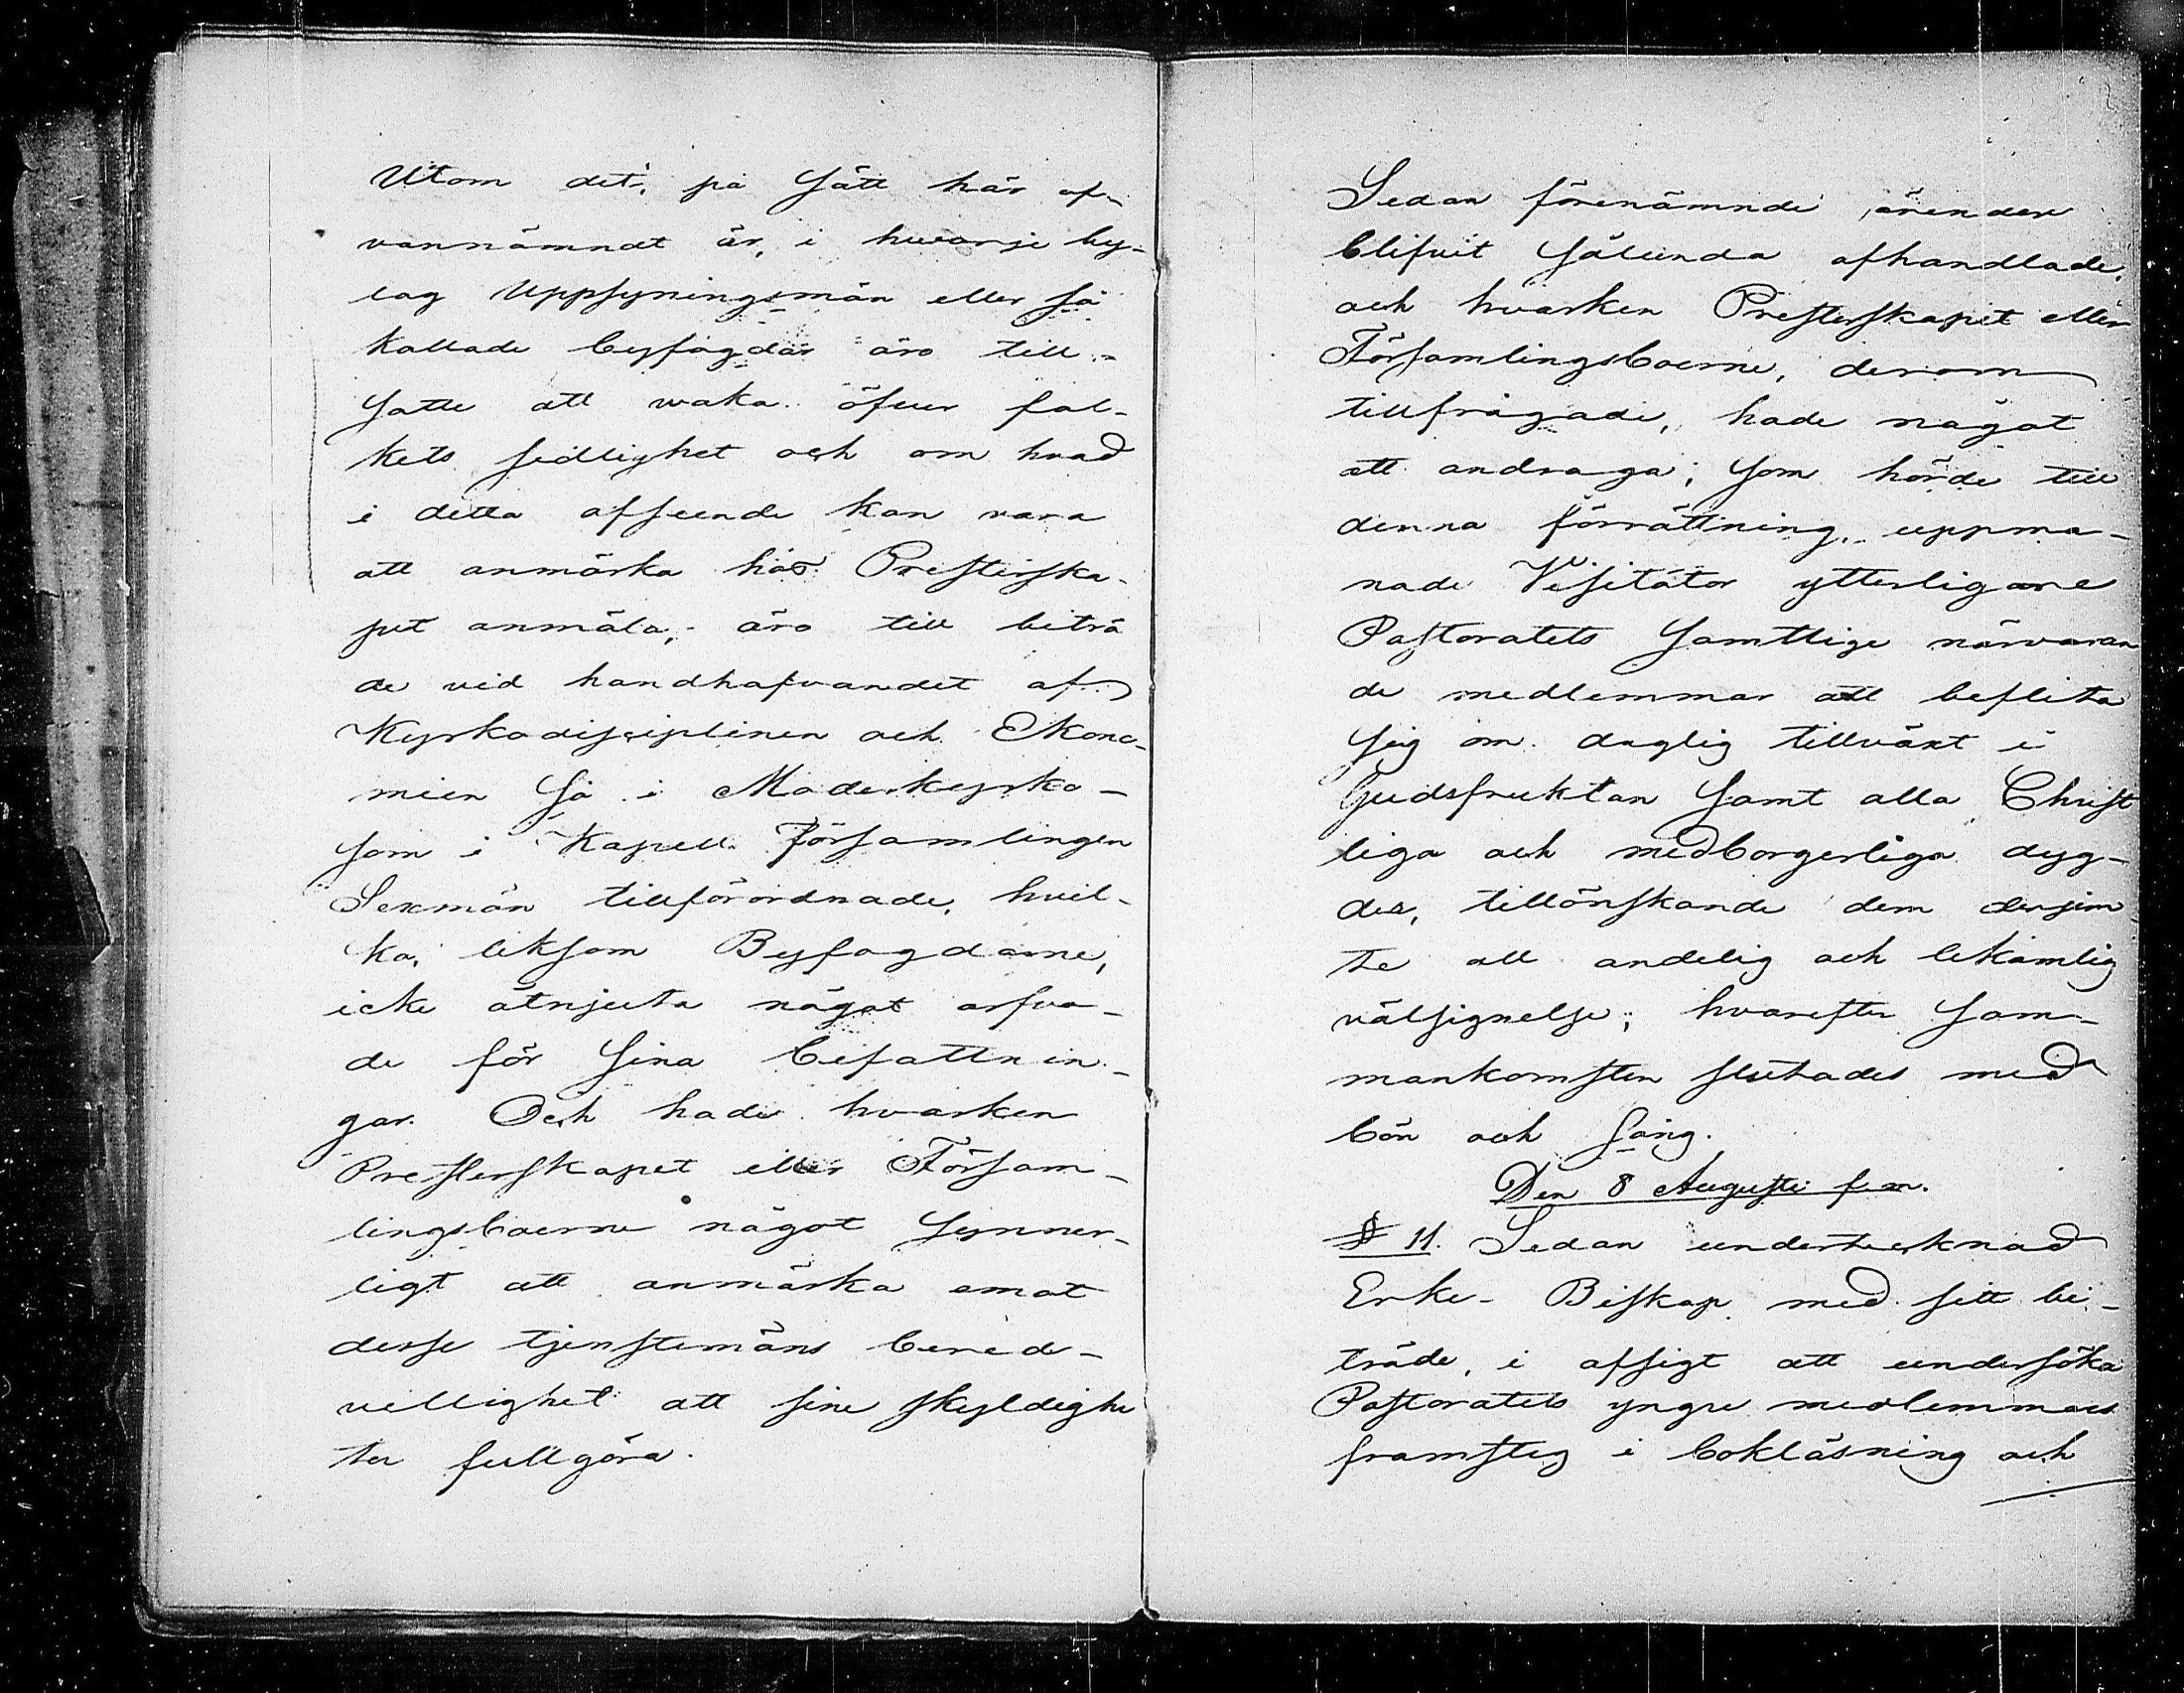 Utom det, på sätt här of-
vannämndt är, i hwarje by-
lag Uppsyningsmän eller så
kallade byfogdar äro till-
satte att waka öfver fol-
kets sedlighet och om hvad
i detta afseende kan vara
att anmärka hos Prestirska-
pet anmäla, äro till biträ
de vid handhafvandet af
Kyrkodisciplinen och Ekono-
mien så i Moderkyrko-
som i Kapell Församlingen
Sexmän tillförordnade, hvil-
ka, liksom Byfogdarne,
icke åtnjuta något arfvo-
de för sina befattnin-
gar. Och hade hvarken
Presterskapet eller Försam-
lingsboerne något synner-
ligt att anmärka emot
desse tjenstemäns bered-
villighet att sine skyldighe
ter fullgöra.
Sedan förenämnde ärenden
blifvit sålunda afhandlade,
och hvarken Presterskapet eller
Församlingsboerne, derom
tillfrågade, hade något
att andraga, som hörde till
denna förrättning, uppma-
nade Visitator ytterligare
Pastoratets samtlige närvaran
de medlemmar att beflita
sig om daglig tillväxt i
Gudsfruktan samt alla Christ
liga och medborgerliga dyg-
der, tillönskande dem derjem
te all andelig och lekamlig
välsignelse; hvarefter sam-
mankomsten slutades med
bön och sång.
Den 8 Augusti f.m.
§ 11. Sedan undertecknad
Erke- Biskop med sitt bi-
träde, i afsigt att undersöka
Pastoratets yngre medlemmars
framsteg i bokläsning och